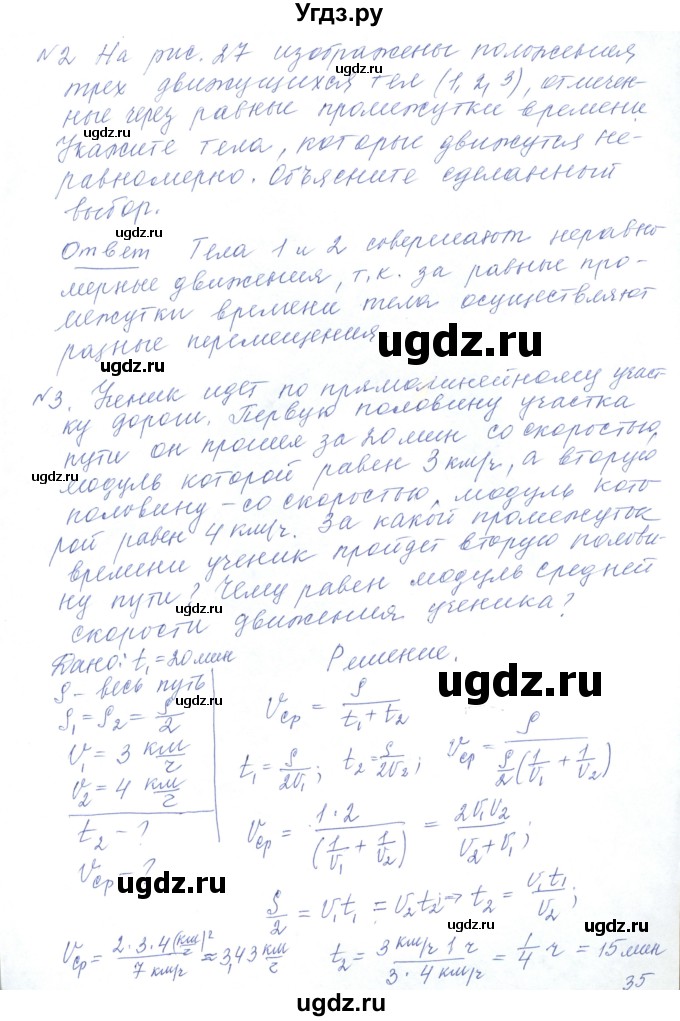 Угдз.ру
№2 На рис. 27 изображены положения
трех движущихся тел (1, 2, 3), отмечен-
ные через равные промежутки времени
Укажите тела, которые движутся не-
равномерно. Объясните сделанный
выбор.
Ответ Тела 1 и 2 совершают неравно
мерные движения, т.к. за равные про-
межутки времени тела осуществляют
разные перемещения
№3. Ученик идет по прямолинейному учас-
ку дороги. Первую половину участка
пути он прошел за 20 мин со скоростью,
модуль которой равен 3 км/ч, а вторую
половину - со скоростью, модуль кото
рой равен 4 км/ч. За какой промежуток
времени ученик пройдет вторую полови-
ну пути? Чему равен модуль средней
скорости движения ученика?
Дано: t₁ = 20 мин Решение.
S - весь путь
S₁ = S₂ = S/2 Vср = S/(t₁ + t₂)
V₁ = 3 км/ч t₁ = S/2V₁; t₂ = S/2V₂; Vср = S/(S/2(1/V₁ + 1/V₂))
V₂ = 4 км/ч
t₂ - ? Vср = 1·2/(1/V₁ + 1/V₂) = 2V₁V₂/(V₂ + V₁);
Vср - ?
S/2 = V₁t₁ = V₂t₂ => t₂ = V₁t₁/V₂;
Vср = 2·3·4(км/ч)²/7 км/ч ≈ 3,43 км/ч t₂ = 3 км/ч 1 ч/3·4 км/ч = 1/4 ч = 15 мин
35
ugdz.ru
ugdz.ru
ugdz.ru
ugdz.ru
ugdz.ru
ugdz.ru
ugdz.ru
ugdz.ru
ugdz.ru
ugdz.ru
ugdz.ru
ugdz.ru
ugdz.ru
ugdz.ru